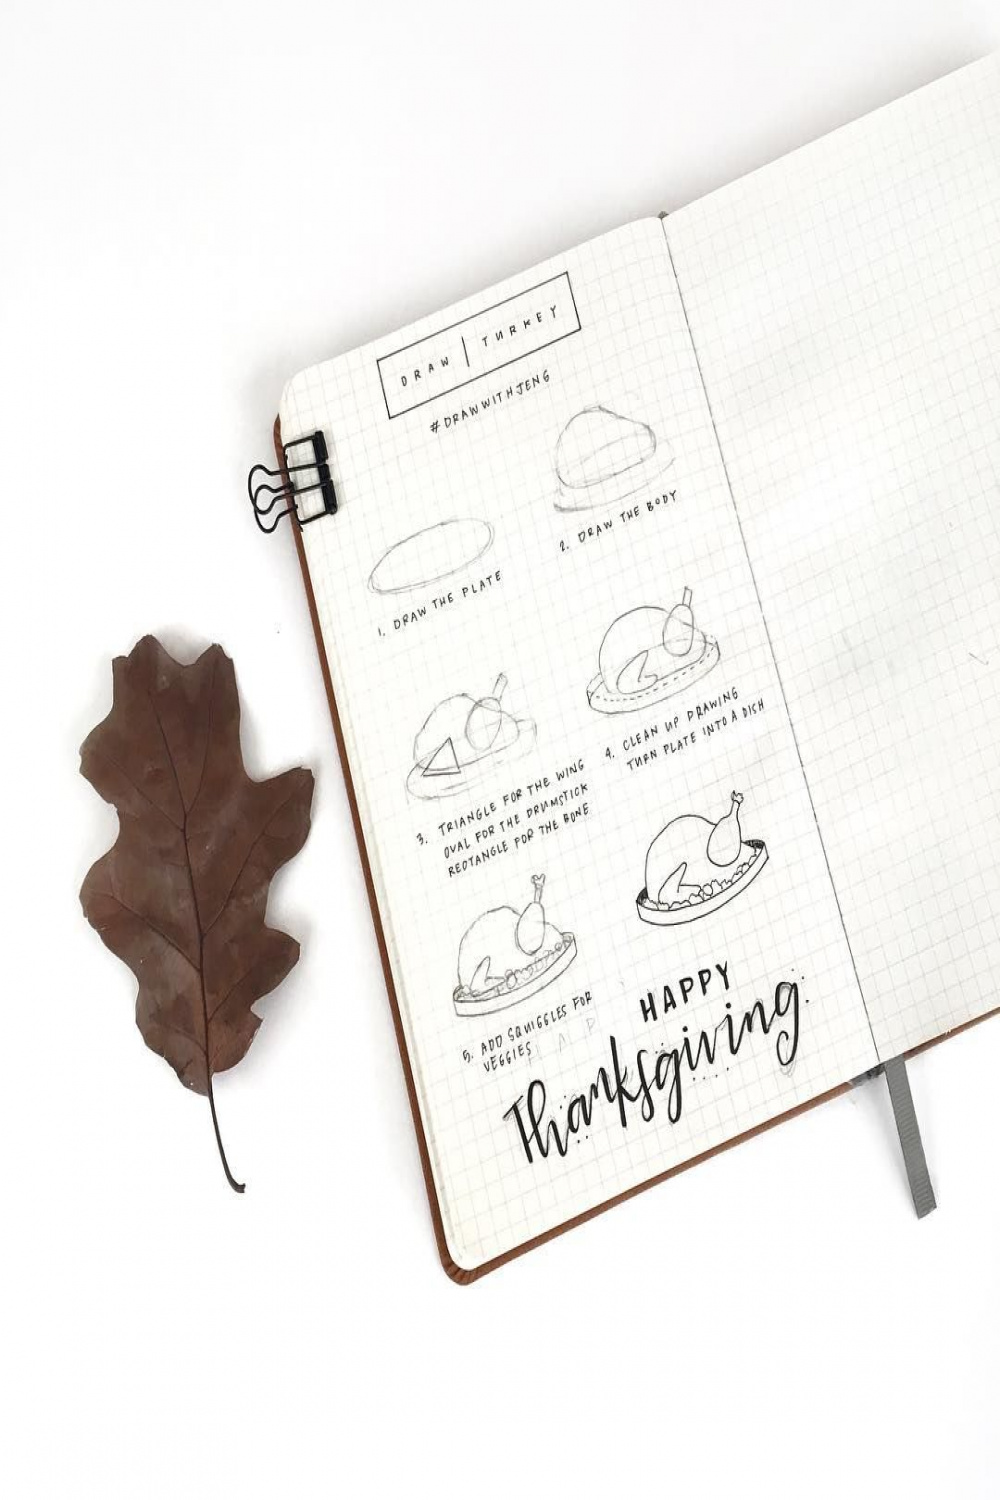 DRAW | TURKEY
#DRAWWITHJENG
1. DRAW THE PLATE
2. DRAW THE BODY
3. TRIANGLE FOR THE WING
OVAL FOR THE DRUMSTICK
RECTANGLE FOR THE BONE
4. CLEAN UP DRAWING
TURN PLATE INTO A DISH
5. ADD SQUIGGLES FOR
VEGGIES
HAPPY
Thanksgiving